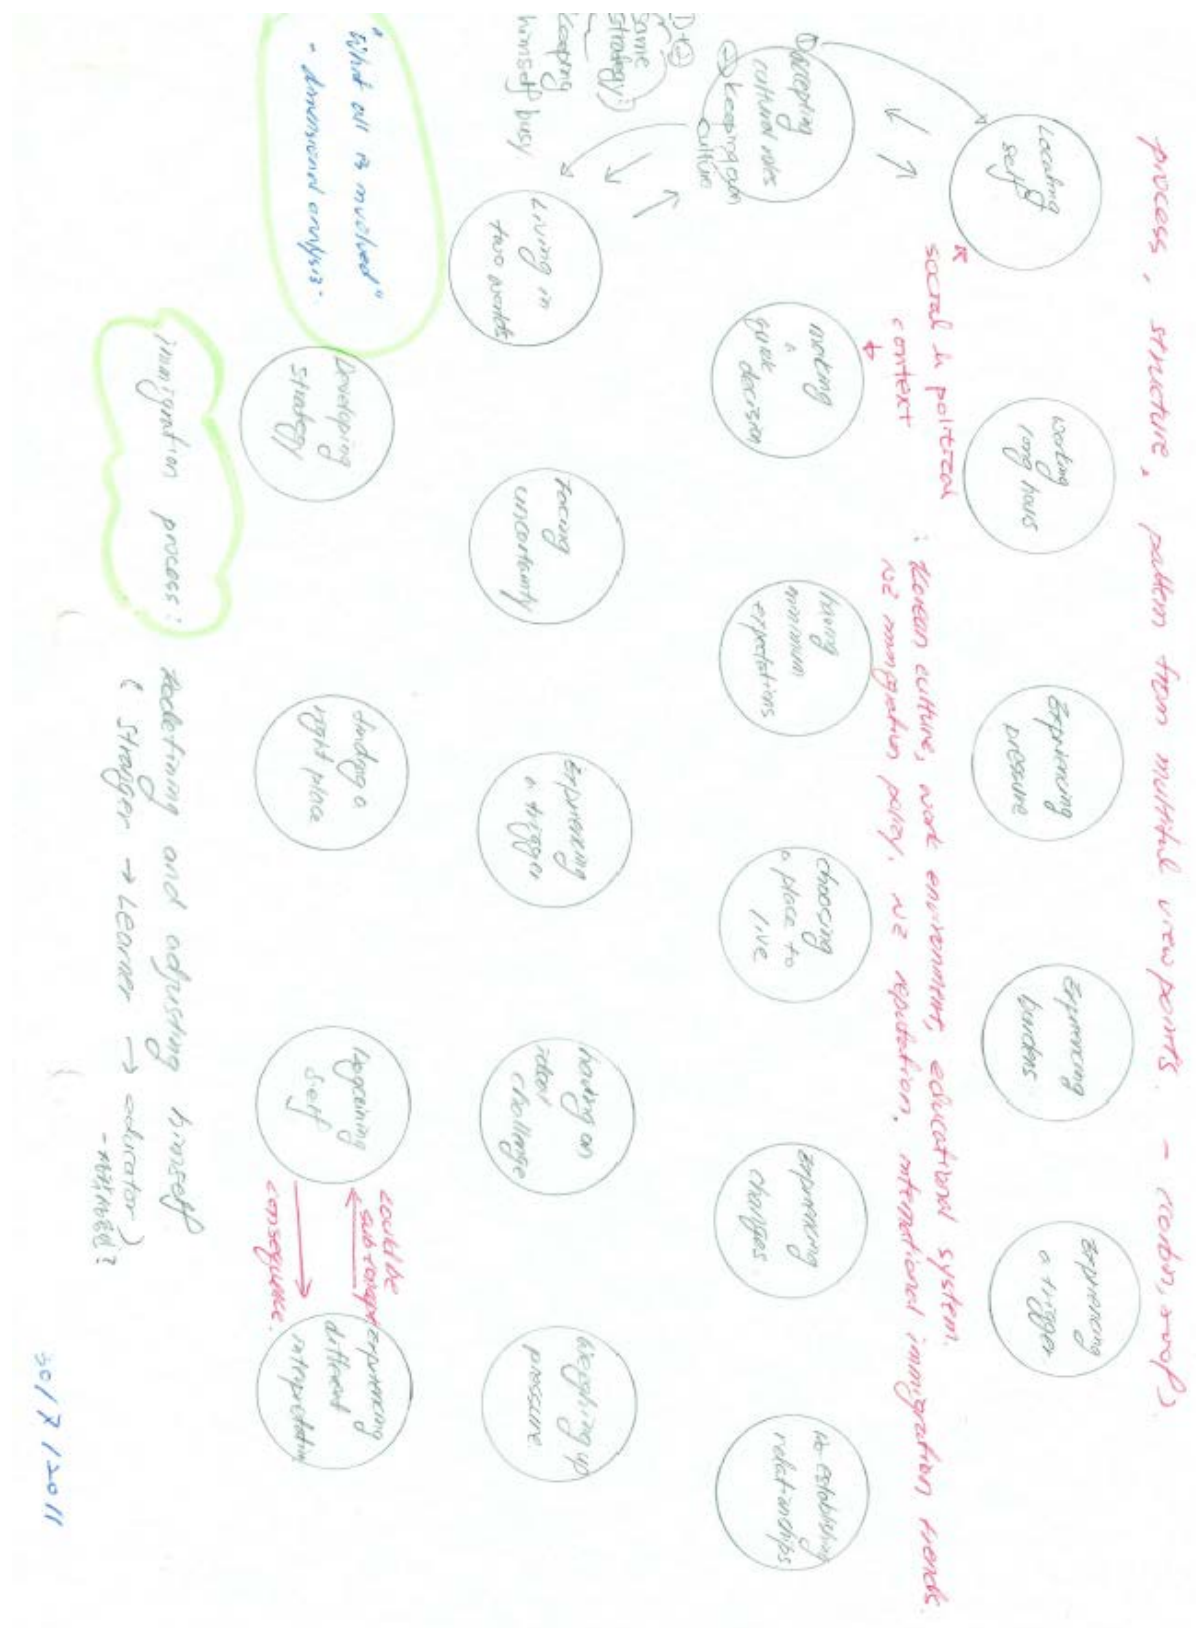 process, structure, pattern from multiful view points. - (corbin,
Locating
self
working
long hours
Expriencing
pressure
Expriencing
burdens
Expriencing
a trigger
social in political
context
: Korean culture, work environment, educational system.
NZ immigration policy, NZ reputation, international immigration trends.
①Accepting
cultural rules
keeping own
culture
making
a
quick
decision
having
minimum
expectations
choosing
a place to
live
Expriencing
changes
Re-establishing
relationships
same
strategy:
keeping
himself busy
Living in
two worlds
Facing
uncertainty
Expriencing
a trigger
having an
ideal
challenge
Weighing up
pressure.
"What all is involved"
- dimensional analysis -
Developing
strategy
finding a
right place
Regaining
self
could be
sub-concept
consequence.
Expriencing
different
interpretation
immigration process:
Redefining and adjusting himself
( Stranger → Learner → educator)
30/7/2011